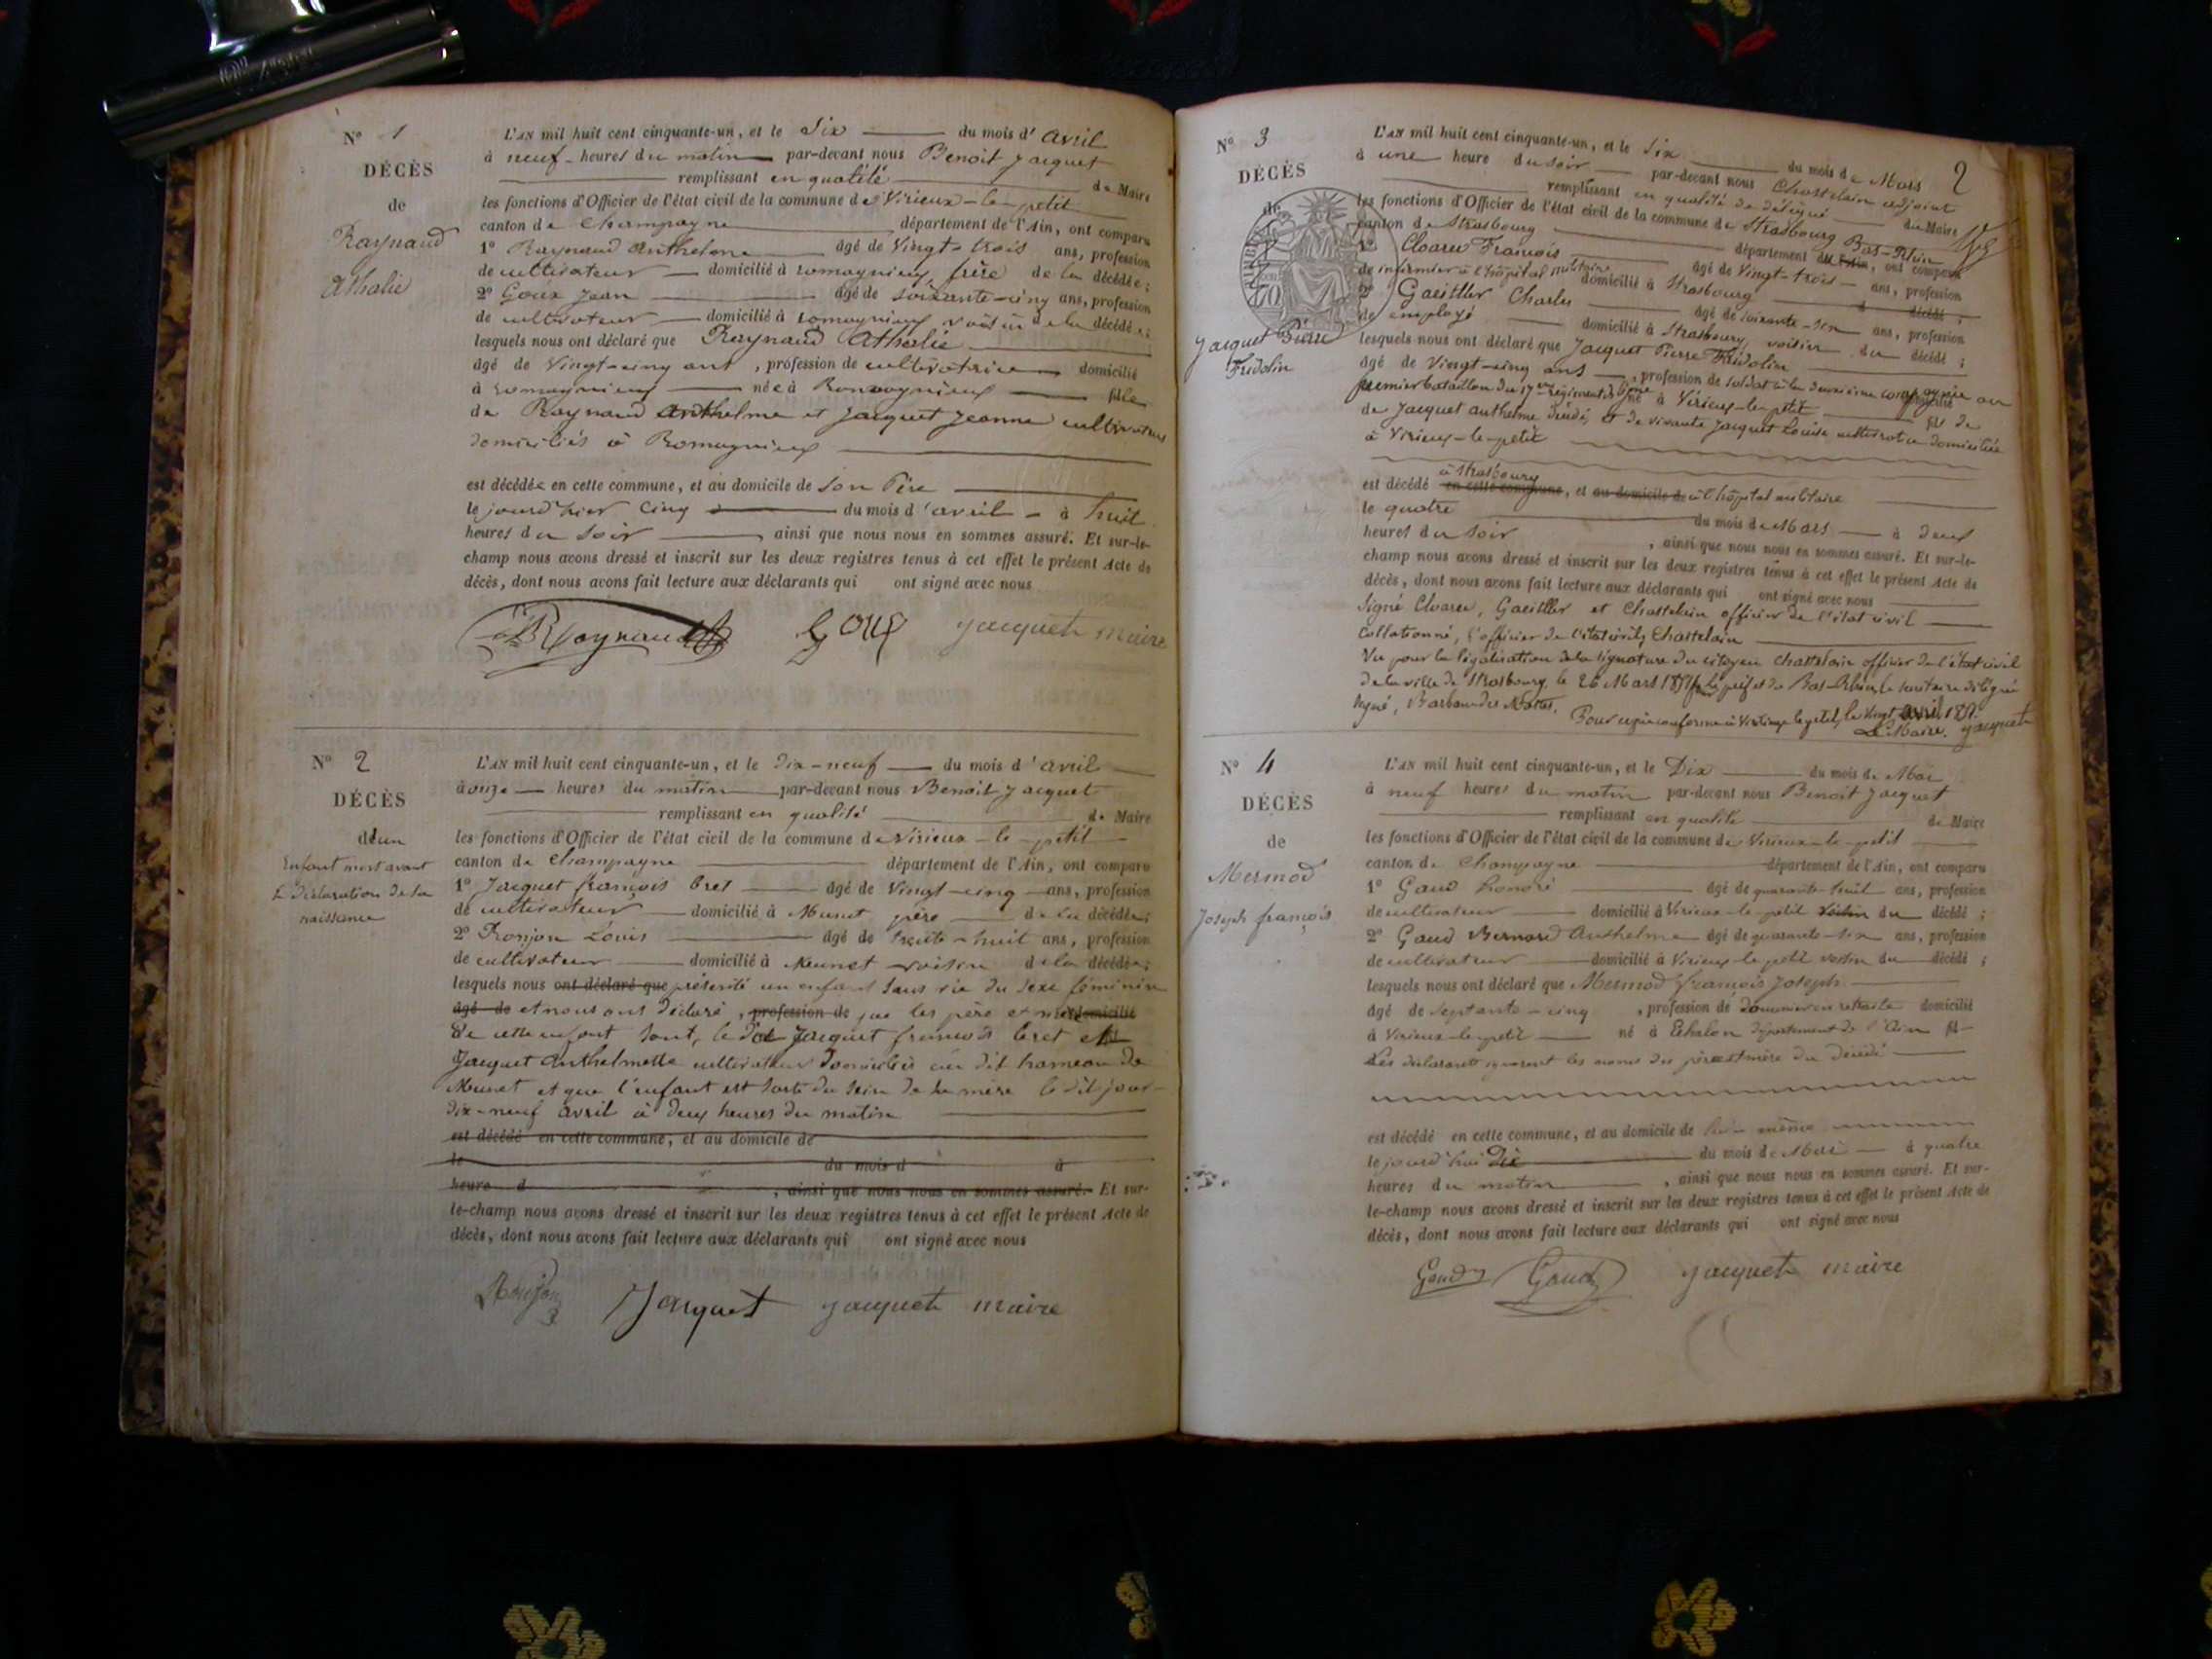 N° 1
DÉCÈS
de
Raynaud
Athalie
L'AN mil huit cent cinquante-un, et le Six du mois d'avril
à neuf heures du matin par-devant nous Benoit Jacquet
remplissant en qualité de Maire
les fonctions d'Officier de l'état civil de la commune de Virieux-le-petit
canton de Champagne département de l'Ain, ont comparu
1° Raynaud Anthelme âgé de Vingt-trois ans, profession
de cultivateur domicilié à Romagnieux frère de la décédée ;
2° Goux Jean âgé de soixante-cinq ans, profession
de cultivateur domicilié à Romagnieux voisin de la décédée ;
lesquels nous ont déclaré que Raynaud Athalie
âgé de Vingt-cinq ans, profession de cultivatrice domicilié
à Romagnieux née à Romagnieux fille
de Raynaud Anthelme et Jacquet Jeanne cultivateurs
domiciliés à Romagnieux
est décédée en cette commune, et au domicile de son Père
le jourd'hier cinq du mois d'avril à huit
heures du soir, ainsi que nous nous en sommes assuré. Et sur-le-
champ nous avons dressé et inscrit sur les deux registres tenus à cet effet le présent Acte de
décès, dont nous avons fait lecture aux déclarants qui ont signé avec nous
Raynaud Goux Jacquet maire
N° 2
DÉCÈS
d'un
Enfant mort avant
la déclaration de la
naissance
L'AN mil huit cent cinquante-un, et le Dix-neuf du mois d'avril
à onze heures du matin par-devant nous Benoit Jacquet
remplissant en qualité de Maire
les fonctions d'Officier de l'état civil de la commune de Virieux-le-petit
canton de Champagne département de l'Ain, ont comparu
1° Jacquet françois Bret âgé de Vingt-cinq ans, profession
de cultivateur domicilié à Munet père de la décédée ;
2° Ronjon Louis âgé de trente-huit ans, profession
de cultivateur domicilié à Munet voisin de la décédée ;
lesquels nous ont déclaré que présenté un enfant sans vie du sexe féminin
âgé de et nous ont déclaré, profession de que les père et mère domicilié
de cette enfant sont, le dit Jacquet françois Bret et
Jacquet Anthelmette cultivateurs domiciliés au dit hameau de
Munet et que l'enfant est sorti du sein de sa mère le dit jour
dix-neuf avril à deux heures du matin
est décédé en cette commune, et au domicile de
le du mois d à
heure d, ainsi que nous nous en sommes assuré. Et sur-
le-champ nous avons dressé et inscrit sur les deux registres tenus à cet effet le présent Acte de
décès, dont nous avons fait lecture aux déclarants qui ont signé avec nous
Ronjon Jacquet Jacquet maire
2
N° 3
DÉCÈS
de
Jacquet Pierre
Fridolin
L'AN mil huit cent cinquante-un, et le Six du mois de Mars
à une heure du soir par-devant nous Chastelain adjoint
remplissant en qualité de délégué du Maire
les fonctions d'Officier de l'état civil de la commune de Strasbourg
canton de Strasbourg département du Bas-Rhin de l'Ain, ont comparu
1° François âgé de Vingt-trois ans, profession
de infirmier à l'hôpital militaire domicilié à Strasbourg d décédé ;
2° Charles âgé de soixante-six ans, profession
de employé domicilié à Strasbourg voisin du décédé ;
lesquels nous ont déclaré que Jacquet Pierre Fridolin
âgé de Vingt-cinq ans, profession de soldat à la deuxième compagnie au
premier bataillon du 17 régiment de ligne né à Virieux-le-petit fils de
de Jacquet anthelme décédé, et de vivante Jacquet Louise cultivatrice domiciliée
à Virieux-le-petit
est décédé en cette commune à Strasbourg, et au domicile de à l'hôpital militaire
le quatre du mois de Mars à deux
heures du soir, ainsi que nous nous en sommes assuré. Et sur-le-
champ nous avons dressé et inscrit sur les deux registres tenus à cet effet le présent Acte de
décès, dont nous avons fait lecture aux déclarants qui ont signé avec nous
signé et Chastelain officier de l'état civil
Collationné, l'officier de l'état civil, Chastelain
Vu pour la légalisation de la signature du citoyen Chastelain officier de l'état civil
de la ville de Strasbourg, le 26 Mars 1851 le préfet du Bas-Rhin, le secrétaire délégué
signé,
Pour copie conforme à Virieux le petit, le Vingt avril 1851.
Le Maire. Jacquet
N° 4
DÉCÈS
de
Mermod
Joseph françois
L'AN mil huit cent cinquante-un, et le Dix du mois de Mai
à neuf heures du matin par-devant nous Benoit Jacquet
remplissant en qualité de Maire
les fonctions d'Officier de l'état civil de la commune de Virieux-le-petit
canton de Champagne département de l'Ain, ont comparu
1° Gaud honoré âgé de quarante-huit ans, profession
de cultivateur domicilié à Virieux-le-petit voisin du décédé ;
2° Gaud Bernard Anthelme âgé de quarante-six ans, profession
de cultivateur domicilié à Virieux-le-petit voisin du décédé ;
lesquels nous ont déclaré que Mermod françois Joseph
âgé de septante-cinq, profession de douanier en retraite domicilié
à Virieux-le-petit né à Echalon département de l'Ain fil
Les déclarants ignorent les noms des père et mère du décédé
est décédé en cette commune, et au domicile de lui même
le jourd'hui Dix du mois de Mai à quatre
heures du matin, ainsi que nous nous en sommes assuré. Et sur-
le-champ nous avons dressé et inscrit sur les deux registres tenus à cet effet le présent Acte de
décès, dont nous avons fait lecture aux déclarants qui ont signé avec nous
Gaud Gaud Jacquet maire